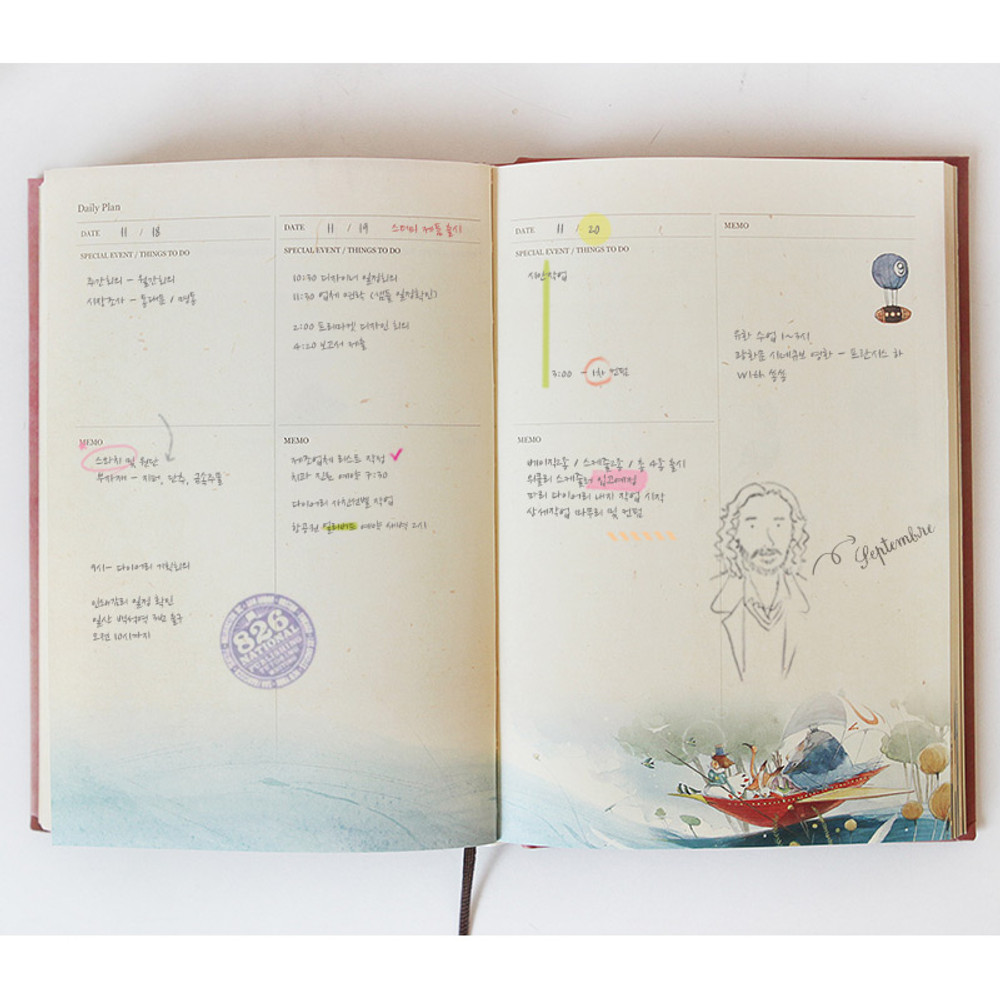 Daily Plan
DATE 11 / 18
SPECIAL EVENT / THINGS TO DO
주간회의 - 월간회의
시장조사 - 동대문 / 명동
MEMO
스와치 및 원단
부자재 - 지퍼, 단추, 금속주물
9시 - 다이어리 기획회의
인쇄감리 일정 확인
일산 백석역 3번 출구
오전 10시까지
826
NATIONAL
PUBLISHING
DATE 11 / 19 스터디 제품 출시
SPECIAL EVENT / THINGS TO DO
10:30 디자이너 일정회의
11:30 업체 연락 (샘플 일정확인)
2:00 프리마켓 디자인 회의
4:20 보고서 제출
MEMO
제조업체 리스트 작성
치과 진료 예약 7:30
다이어리 사진선별 작업
항공권 얼리버드 예약 새벽 2시
DATE 11 / 20
SPECIAL EVENT / THINGS TO DO
시안작업
3:00 - 1차 컨펌
MEMO
베이직2종 / 스케줄2종 / 총 4종 출시
위클리 스케줄러 입고예정
파리 다이어리 내지 작업 시작
상세작업 마무리 및 컨펌
MEMO
9
유화 수업 1~3시
광화문 시네큐브 영화 - 프란시스 하
With 쏭쏭
Septembre